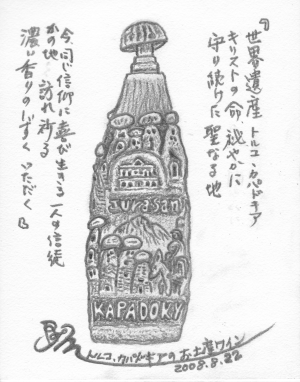 世界遺産 トルコ、カッパドキア
キリストの命 秘やかに
守り続けた 聖なる地
今、同じ信仰に喜び生きる 一人の信徒
かの地 訪れ祈る
濃い香りのしずく いただく
turasan
KAPADOKY
トルコ、カッパドギアのお土産ワイン
2008.8.22